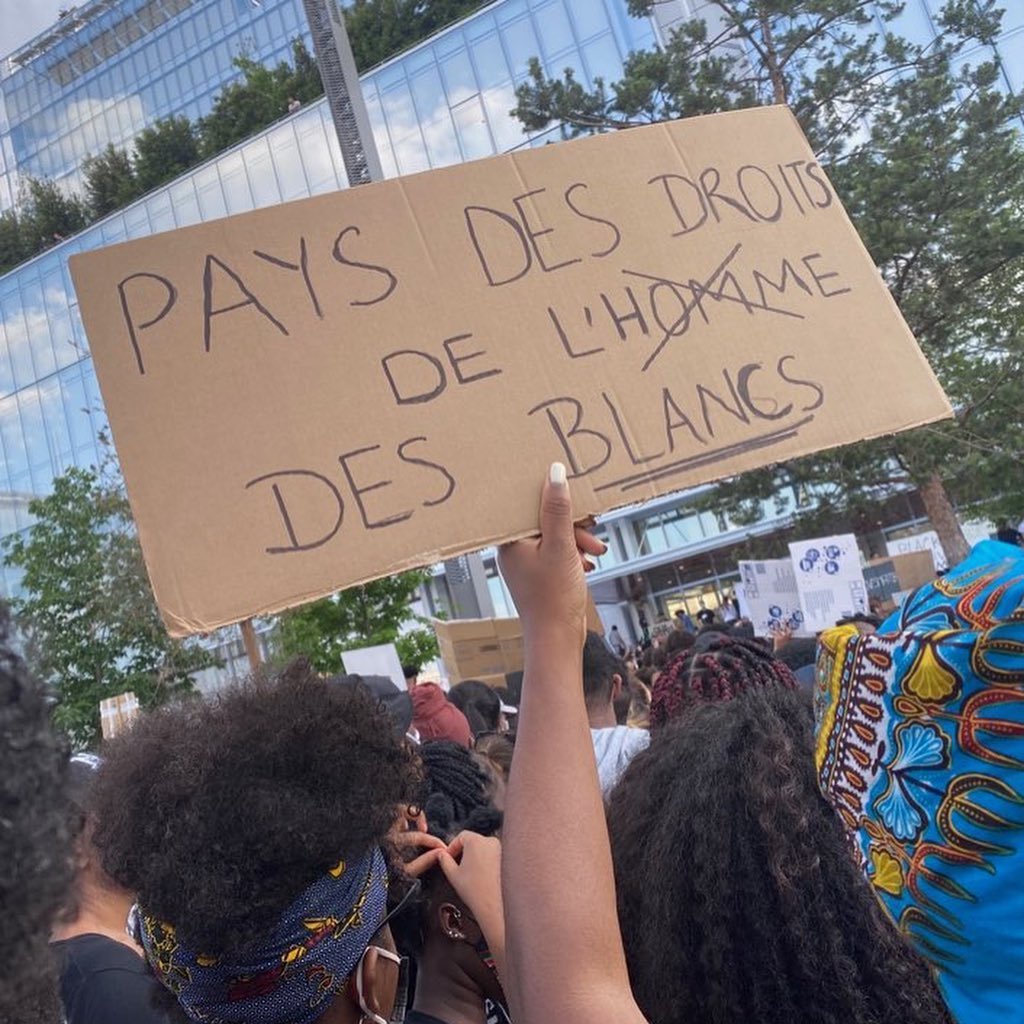 PAYS DES DROITS
DE L'HOMME
DES BLANCS
BLACK